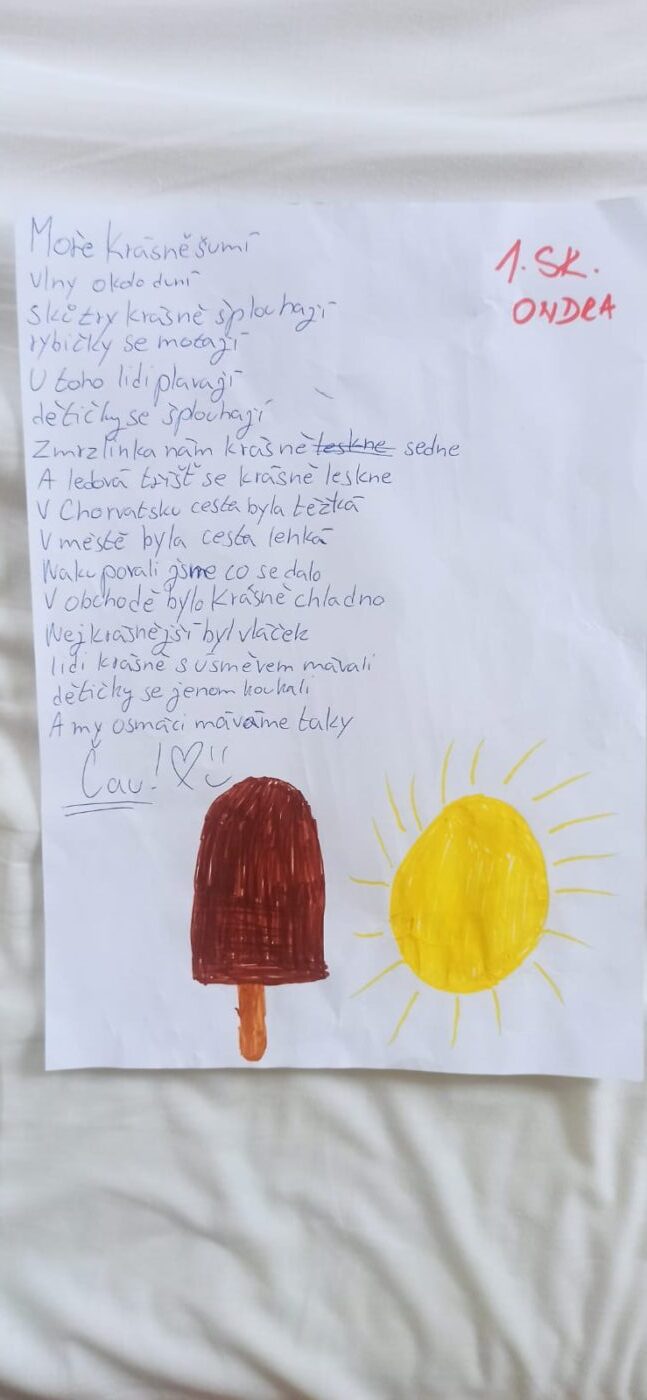 Moře krásně šumí
vlny okolo duní
skůtry krásně šplouhají
rybičky se motají
U toho lidi plavají
dětičky se šplouhají
Zmrzlinka nám krásně leskne sedne
A ledová tříšť se krásně leskne
V Chorvatsku cesta byla těžká
V městě byla cesta lehká
Nakupovali jsme co se dalo
V obchodě bylo krásně chladno
Nejkrásnější byl vláček
lidi krásně s úsměvem mávali
dětičky se jenom koukali
A my osmáci máváme taky
Čau!
1. SK.
ONDRA